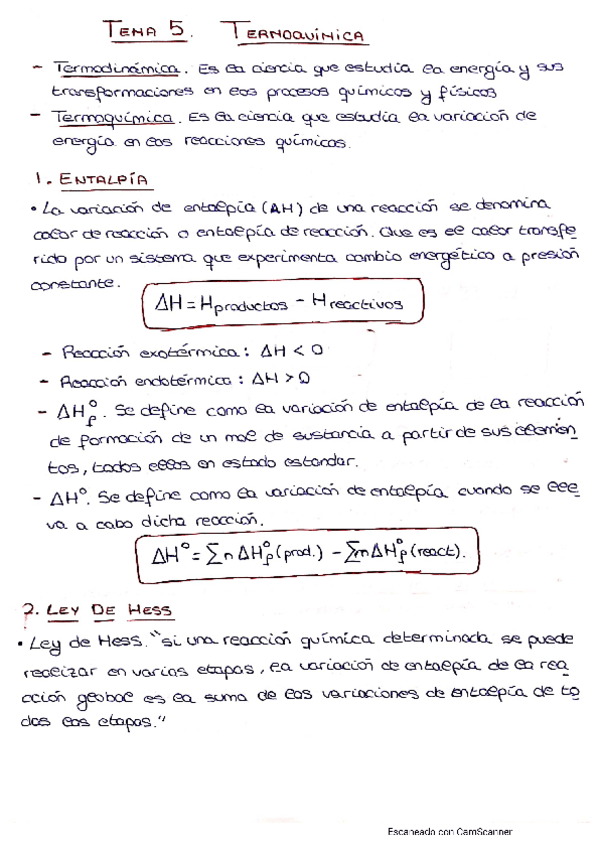 TEMA 5. TERMOQUÍMICA
- Termodinámica. Es la ciencia que estudia la energía y sus
transformaciones en los procesos químicos y físicos
- Termoquímica. Es la ciencia que estudia la variación de
energía en las reacciones químicas.
1. ENTALPÍA
• La variación de entalpía (ΔH) de una reacción se denomina
calor de reacción o entalpía de reacción. Que es el calor transfe
rido por un sistema que experimenta cambio energético a presión
constante.
ΔH = Hproductos - Hreactivos
- Reacción exotérmica: ΔH < 0
- Reacción endotérmica: ΔH > 0
- ΔH°f. Se define como la variación de entalpía de la reacción
de formación de un mol de sustancia a partir de sus elemen
tos, todos ellos en estado estandar.
- ΔH°. Se define como la variación de entalpía cuando se lle
va a cabo dicha reacción.
ΔH° = ∑n ΔH°f (prod.) - ∑m ΔH°f (react).
2. LEY DE HESS
• Ley de Hess. "si una reacción química determinada se puede
realizar en varias etapas, la variación de entalpía de la rea
cción global es la suma de las variaciones de entalpía de to
das las etapas."
Escaneado con CamScanner